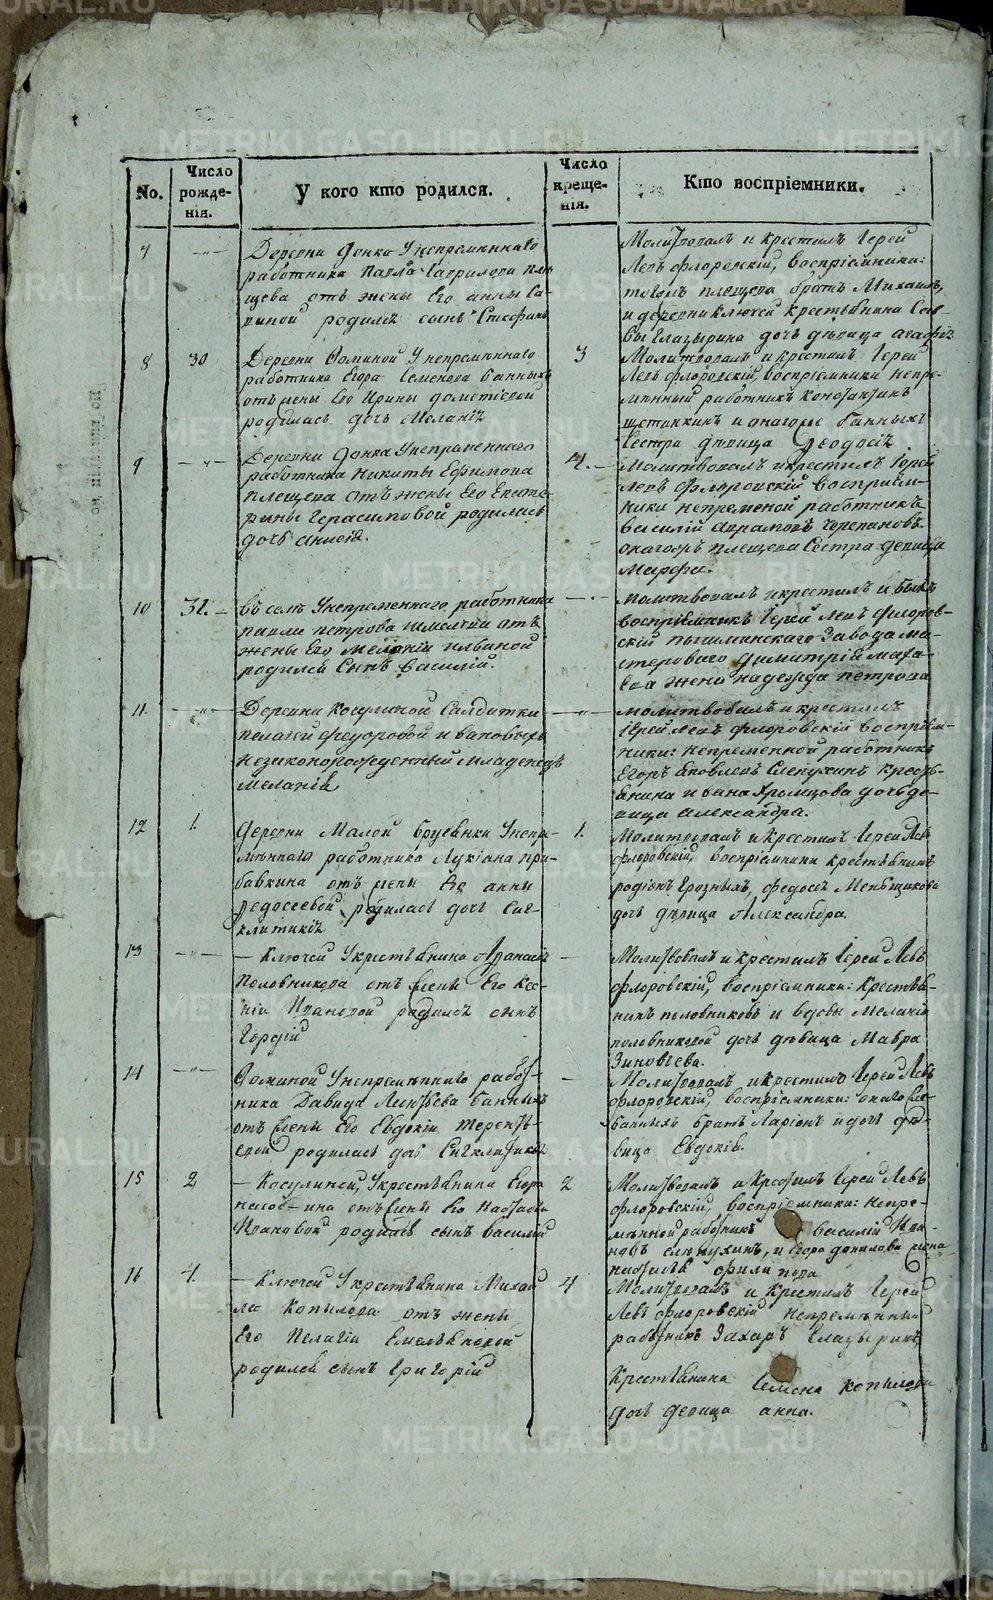 No.
Число рожде-
нія.
У кого кто родился.
Число
креще-
нія.
Кто воспріемники.
7
Деревни Фонка У непременнаго
работника Павла Гаврилова Пле
щева отъ жены Его анны Са-
виной родился сынъ Стефанъ
Молитвовалъ и крестилъ Іерей
Левъ флоровскій, воспріемники:
тогожъ плещева братъ Михаилъ,
и деревни Ключей крестьянина Сав-
вы Глазырина дочь девица агафія
8
30
Деревни Фоминой У непременнаго
работника Егора Семенова банныхъ
отъ жены Его Ирины дометіевой
родилась дочь Меланія
3
Молитвовалъ и крестилъ Іерей
Левъ флоровскій, воспріемники непре-
менный работникъ константинъ
щетинкинъ и онагоже банныхъ
Сестра девица Феодосія
9
Деревни Фонка Унепременнаго
работника никиты Ефимова
плещева отъ жены Его Екате-
рины Герасимовой родилась
дочь анисія.
4.
Молитвовалъ икрестилъ Іерей
левъ Флоровский восприем-
ники непременой работникъ
василий аврамовъ черепановъ
онагожъ плещева Сестра девица
Марфа.
10
31.
въ селе Унепременнаго работника
павла петрова шмелева отъ
жены Его Меланіи ильиной
родился Сынъ василий.
молитвовалъ икрестилъ и былъ
восприемникъ Іерей левъ флоров-
ский пышминскаго Завода ма-
стероваго димитрія маха-
ева жена надежда петрова
11.
Деревни косулиной Салдатки
пелагеи федоровой ивановыхъ
незаконорожденный младенецъ
меланія
молитвовалъ икрестилъ
Іерей левъ флоровский восприем-
ники: непременной работникъ
Егоръ яковлевъ Слепухинъ кресть-
янина ивана Хромцова дочь де-
вица александра.
12
1.
деревни Малой брусянки Унепре-
менного работника Лукіана при-
бавкина отъ жены Его анны
федосеевой родилась дочь Син-
клитикія
1.
Молитвовалъ и крестилъ Іерей Левъ
флоровскій, воспріемники крестьянинъ
родіонъ Грозныхъ, федосея Меньщикова
дочь девица Александра.
13
— Ключей У крестьянина Афанасія
Половникова отъ жены Его Ксе-
ніи Ивановой родился сынъ
Гордій
Молитвовалъ и крестилъ Іерей Левъ
флоровскій, воспріемники: крестья-
нинъ половниковъ и вдовы Меланіи
половниковой дочь девица Мавра
Зиновьева.
14
Фоминой Унепременнаго работ-
ника Давида Леонтьева банныхъ
отъ жены Его Евдокіи терентье-
евой родилась дочь Синклитикія
Молитвовалъ и крестилъ Іерей Левъ
флоровскій, воспріемники: онаго же
банныхъ братъ Ларіонъ и дочь де-
вица Евдокія.
15
2
— Косулиной, У крестьянина Егора
отъ жены Его Настасьи
Ивановой родился сынъ василий
2
Молитвовалъ и крестилъ Іерей Левъ
флоровскій, воспріемники: непре-
менной работникъ василий Ива-
новъ слепухинъ, и Егора данилова жена
настасья филипова
16
4.
— Ключей У крестьянина Михаи
ла Копылова отъ жены
Его Пелагіи Емельяновой
родился сынъ Григорій
4
Молитвовалъ и крестилъ Іерей
Левъ флоровскій непременный
работникъ Захаръ Глазыринъ,
крестьянина Семена копылова
дочь девица анна.
METRIKI.GASO-URAL.RU